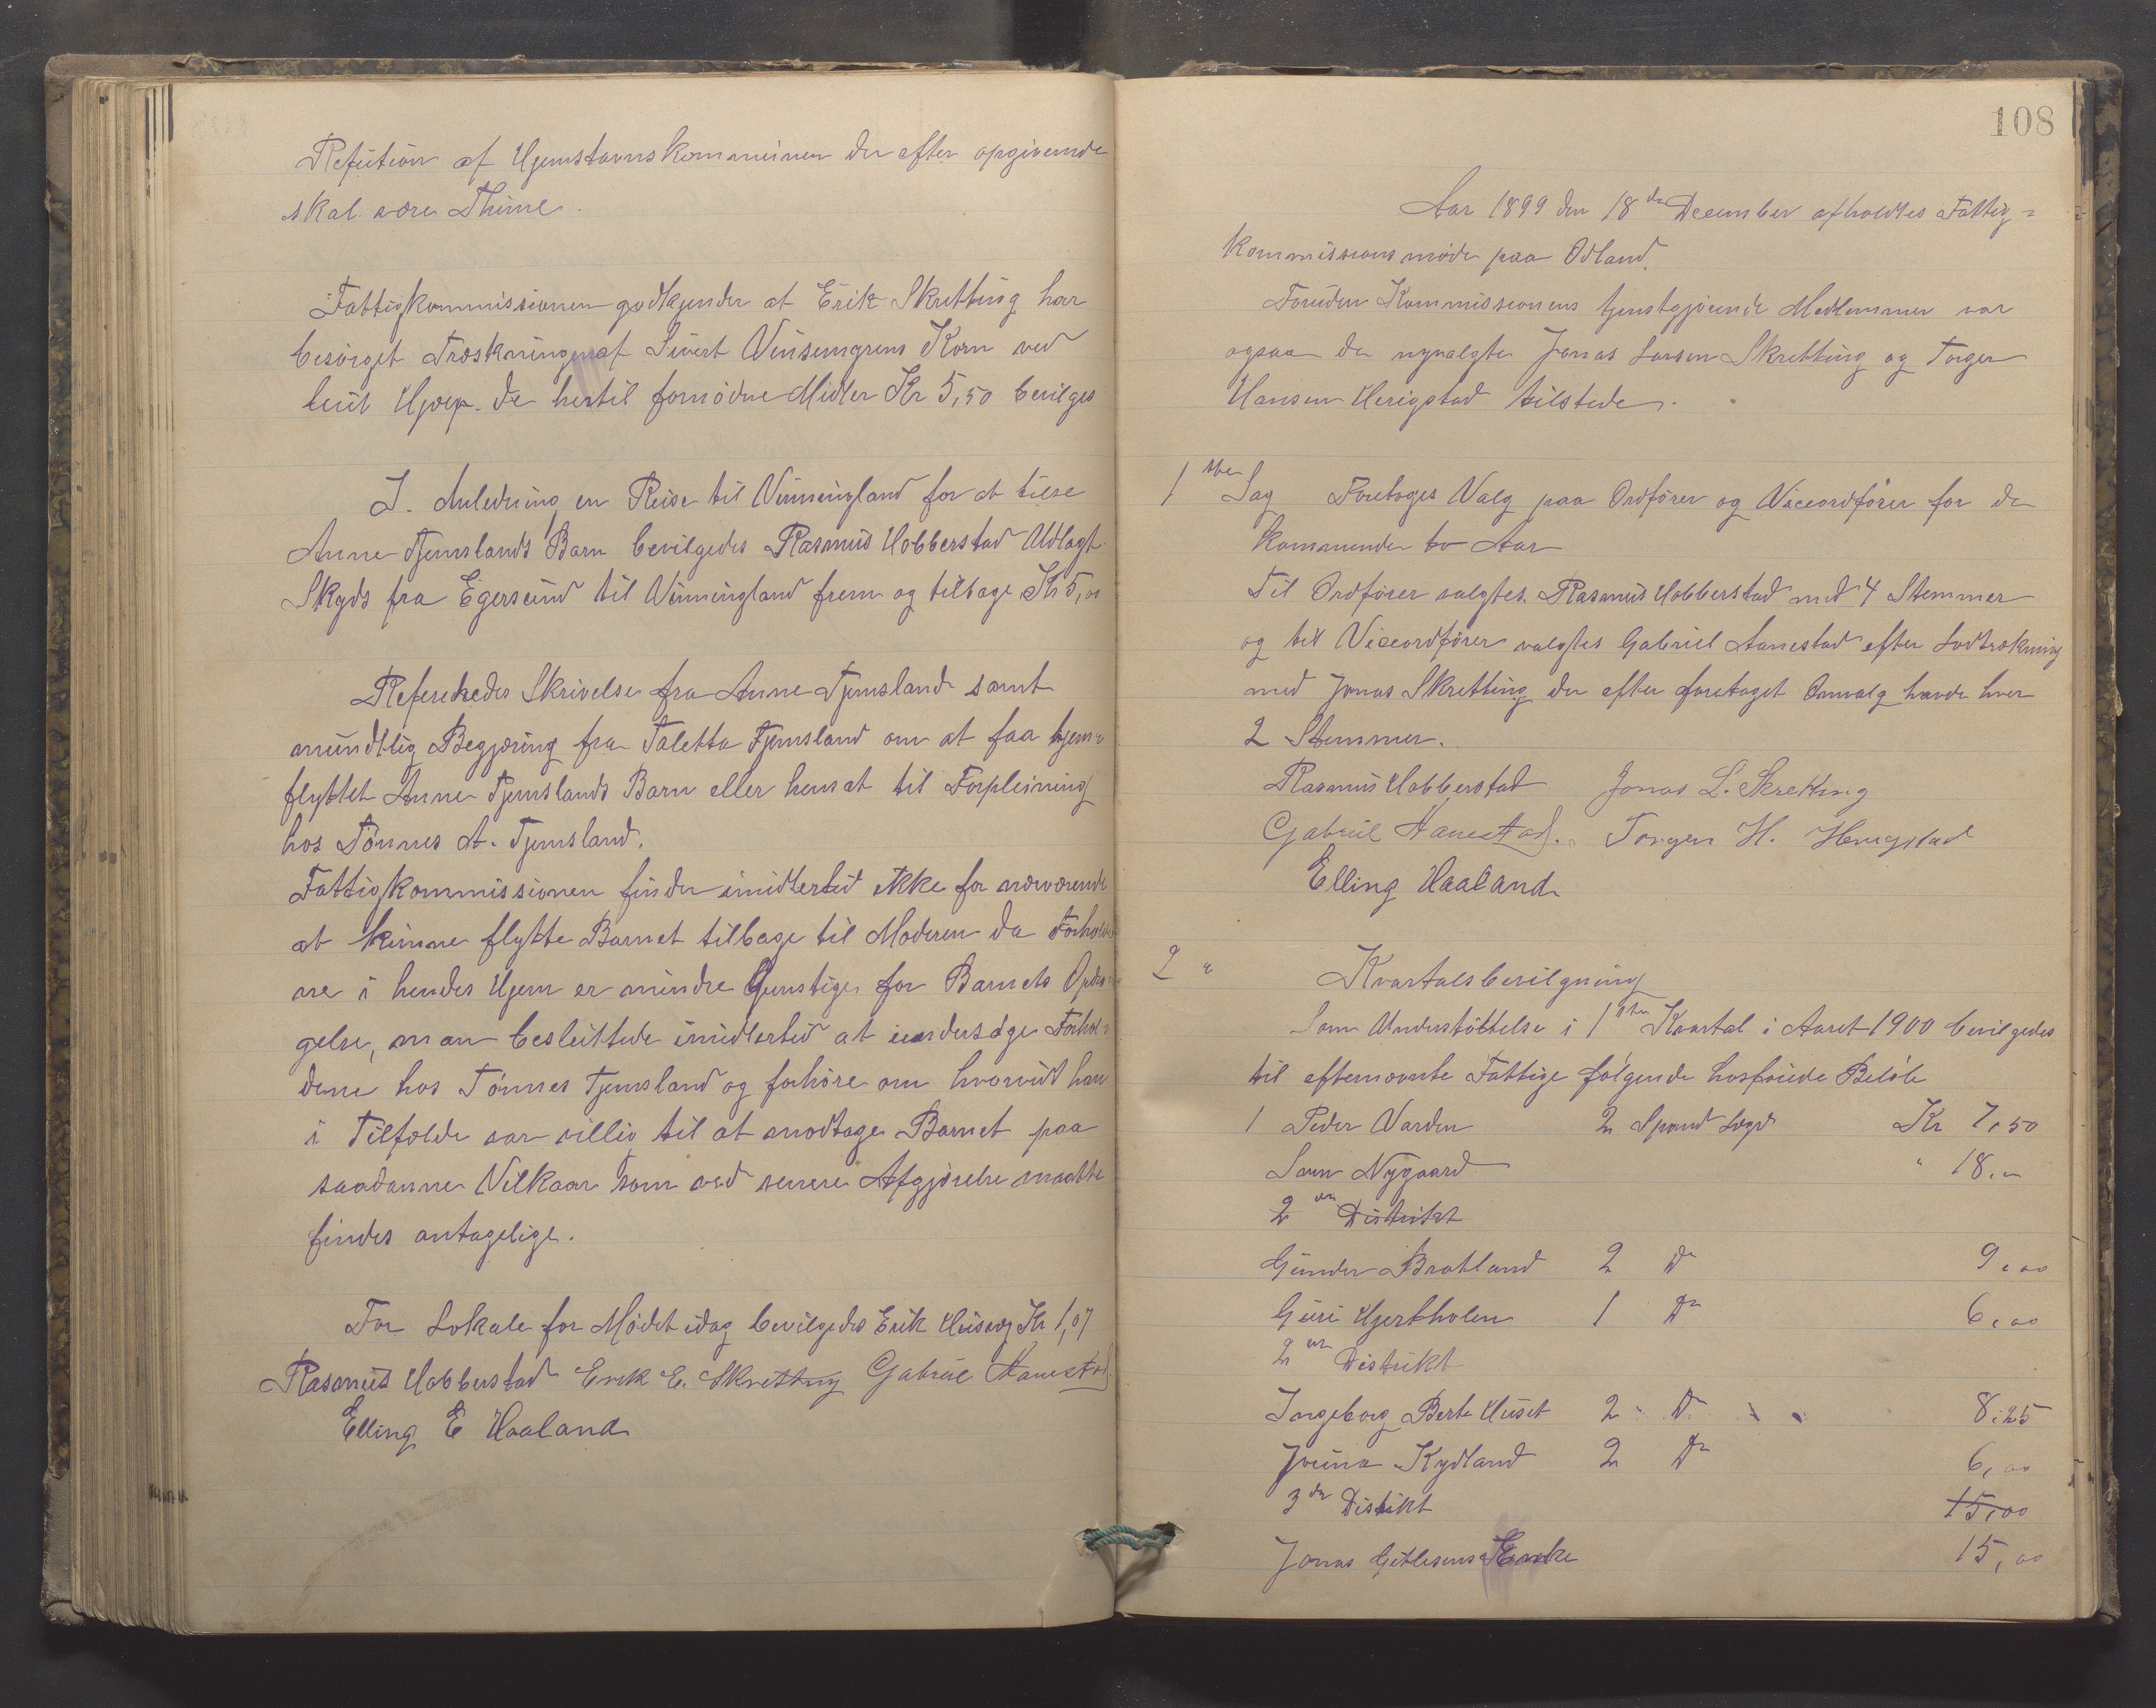 Refution af Hjemstavnskommunen der efter opgivende
skal være Thime.
Fattigkommissionen godkjender at Erik Skretting har
besörget Træskningen af Sivert Vinsemgrens Korn ved
leiet Hjælp. De hertil fornödne Midler Kr 5,50 bevilges
I Anledning en Reise til Vinningland for at tilse
Anne Tjemslands Barn bevilgedes Rasmus Hobberstad Udlagt
Skyds fra Egersund til Vinningland frem og tilbage Kr 5,00
Refereredes Skrivelse fra Anne Tjemsland samt
mundtlig Begjæring fra Taletta Tjemsland om at faa hjem=
flyttet Anne Tjemslands Barn eller hensat til Forpleining
hos Tönnes A. Tjemsland.
Fattigkommissionen finder imidlertid ikke for nærværende
at kunne flytte Barnet tilbage til Moderen da Forholde
ne i hendes Hjem er mindre Gunstige for Barnets Opdra=
gelse, man besluttede imidlertid at undersöge Forhol=
dene hos Tönnes Tjemsland og forhöre om hvorvidt han
i Tilfælde var villig til at modtage Barnet paa
saadanne Vilkaar som ved senere Afgjörelse maatte
findes antagelige.
For Lokale for Mödet idag bevilgedes Erik Kr 1,07
Rasmus Hobberstad Erik E. Skretting Gabriel Aanestad
Elling E Haaland
108
Aar 1899 den 18de December afholdtes Fattig=
kommissions möde paa Odland.
Foruden Kommissionens tjenstgjörende Medlemmer var
ogsaa de nyvalgte Jonas Larsen Skretting og Torger
Hansen Herigstad tilstede.
1ste Sag Foretoges Valg paa Ordförer og Viceordförer for de
kommende to Aar
Til Ordförer valgtes Rasmus Hobberstad med 4 Stemmer
og til Viceordförer valgtes Gabriel Aanestad efter Lodtrækning
med Jonas Skretting der efter foretaget Omvalg havde hver
2 Stemmer.
Rasmus Hobberstad Jonas L. Skretting
Gabriel Aanestad. Torger H. Herigstad
Elling Haaland
2 " Kvartalsbevilgning
Som Understöttelse i 1ste Kvartal i Aaret 1900 bevilgedes
til efternævnte Fattige fölgende hosföiede Belöb
1 Peder Varden 2 Spand Lægd Kr 7,50
Nygaard " 18.„
2en Distrikt
Gunder Bratland 2 Do 9,00
Guri Hjertholen 1 Do 6,00
2en Distrikt
Ingeborg Berte Huset 2 Do 8,25
Kydland 2 Do 6,00
3de Distrikt 15,00
Jonas Gitlesens Enke 15,00